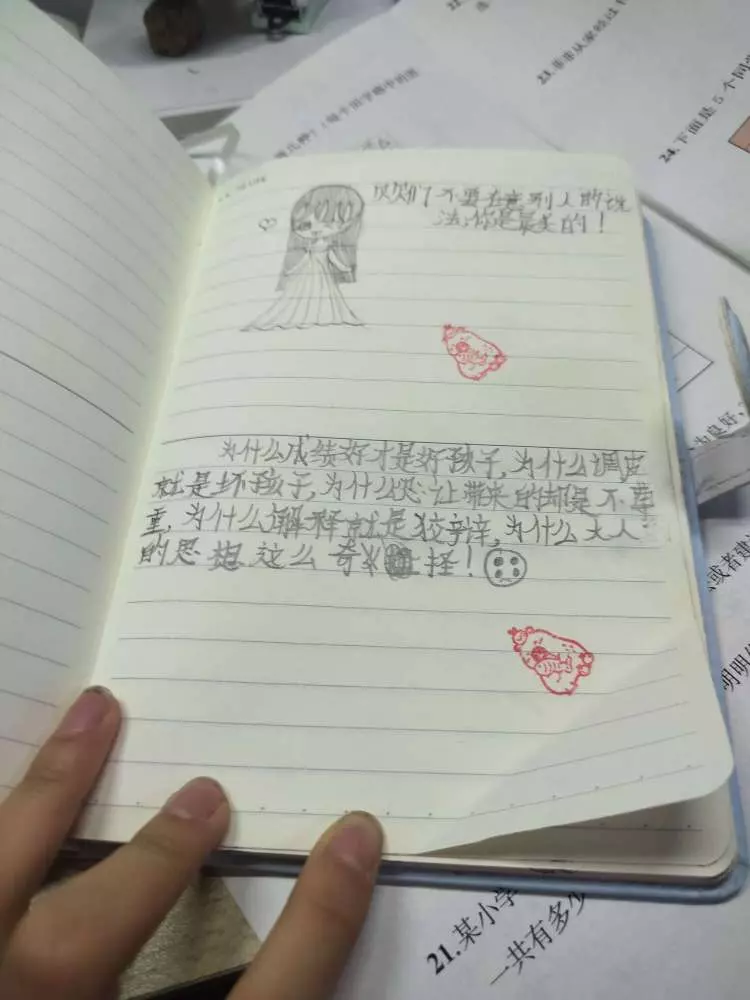 贝贝们不要在意别人的说
法,你是最美的!
为什么成绩好才是好孩子,为什么调皮
就是坏孩子,为什么忍让带来的却是不尊
重,为什么解释就是狡辩,为什么大人
的思想这么奇怪!
23.
24.下面是5个同
为良好,
或者建
明明
21.某小学
一共有多少